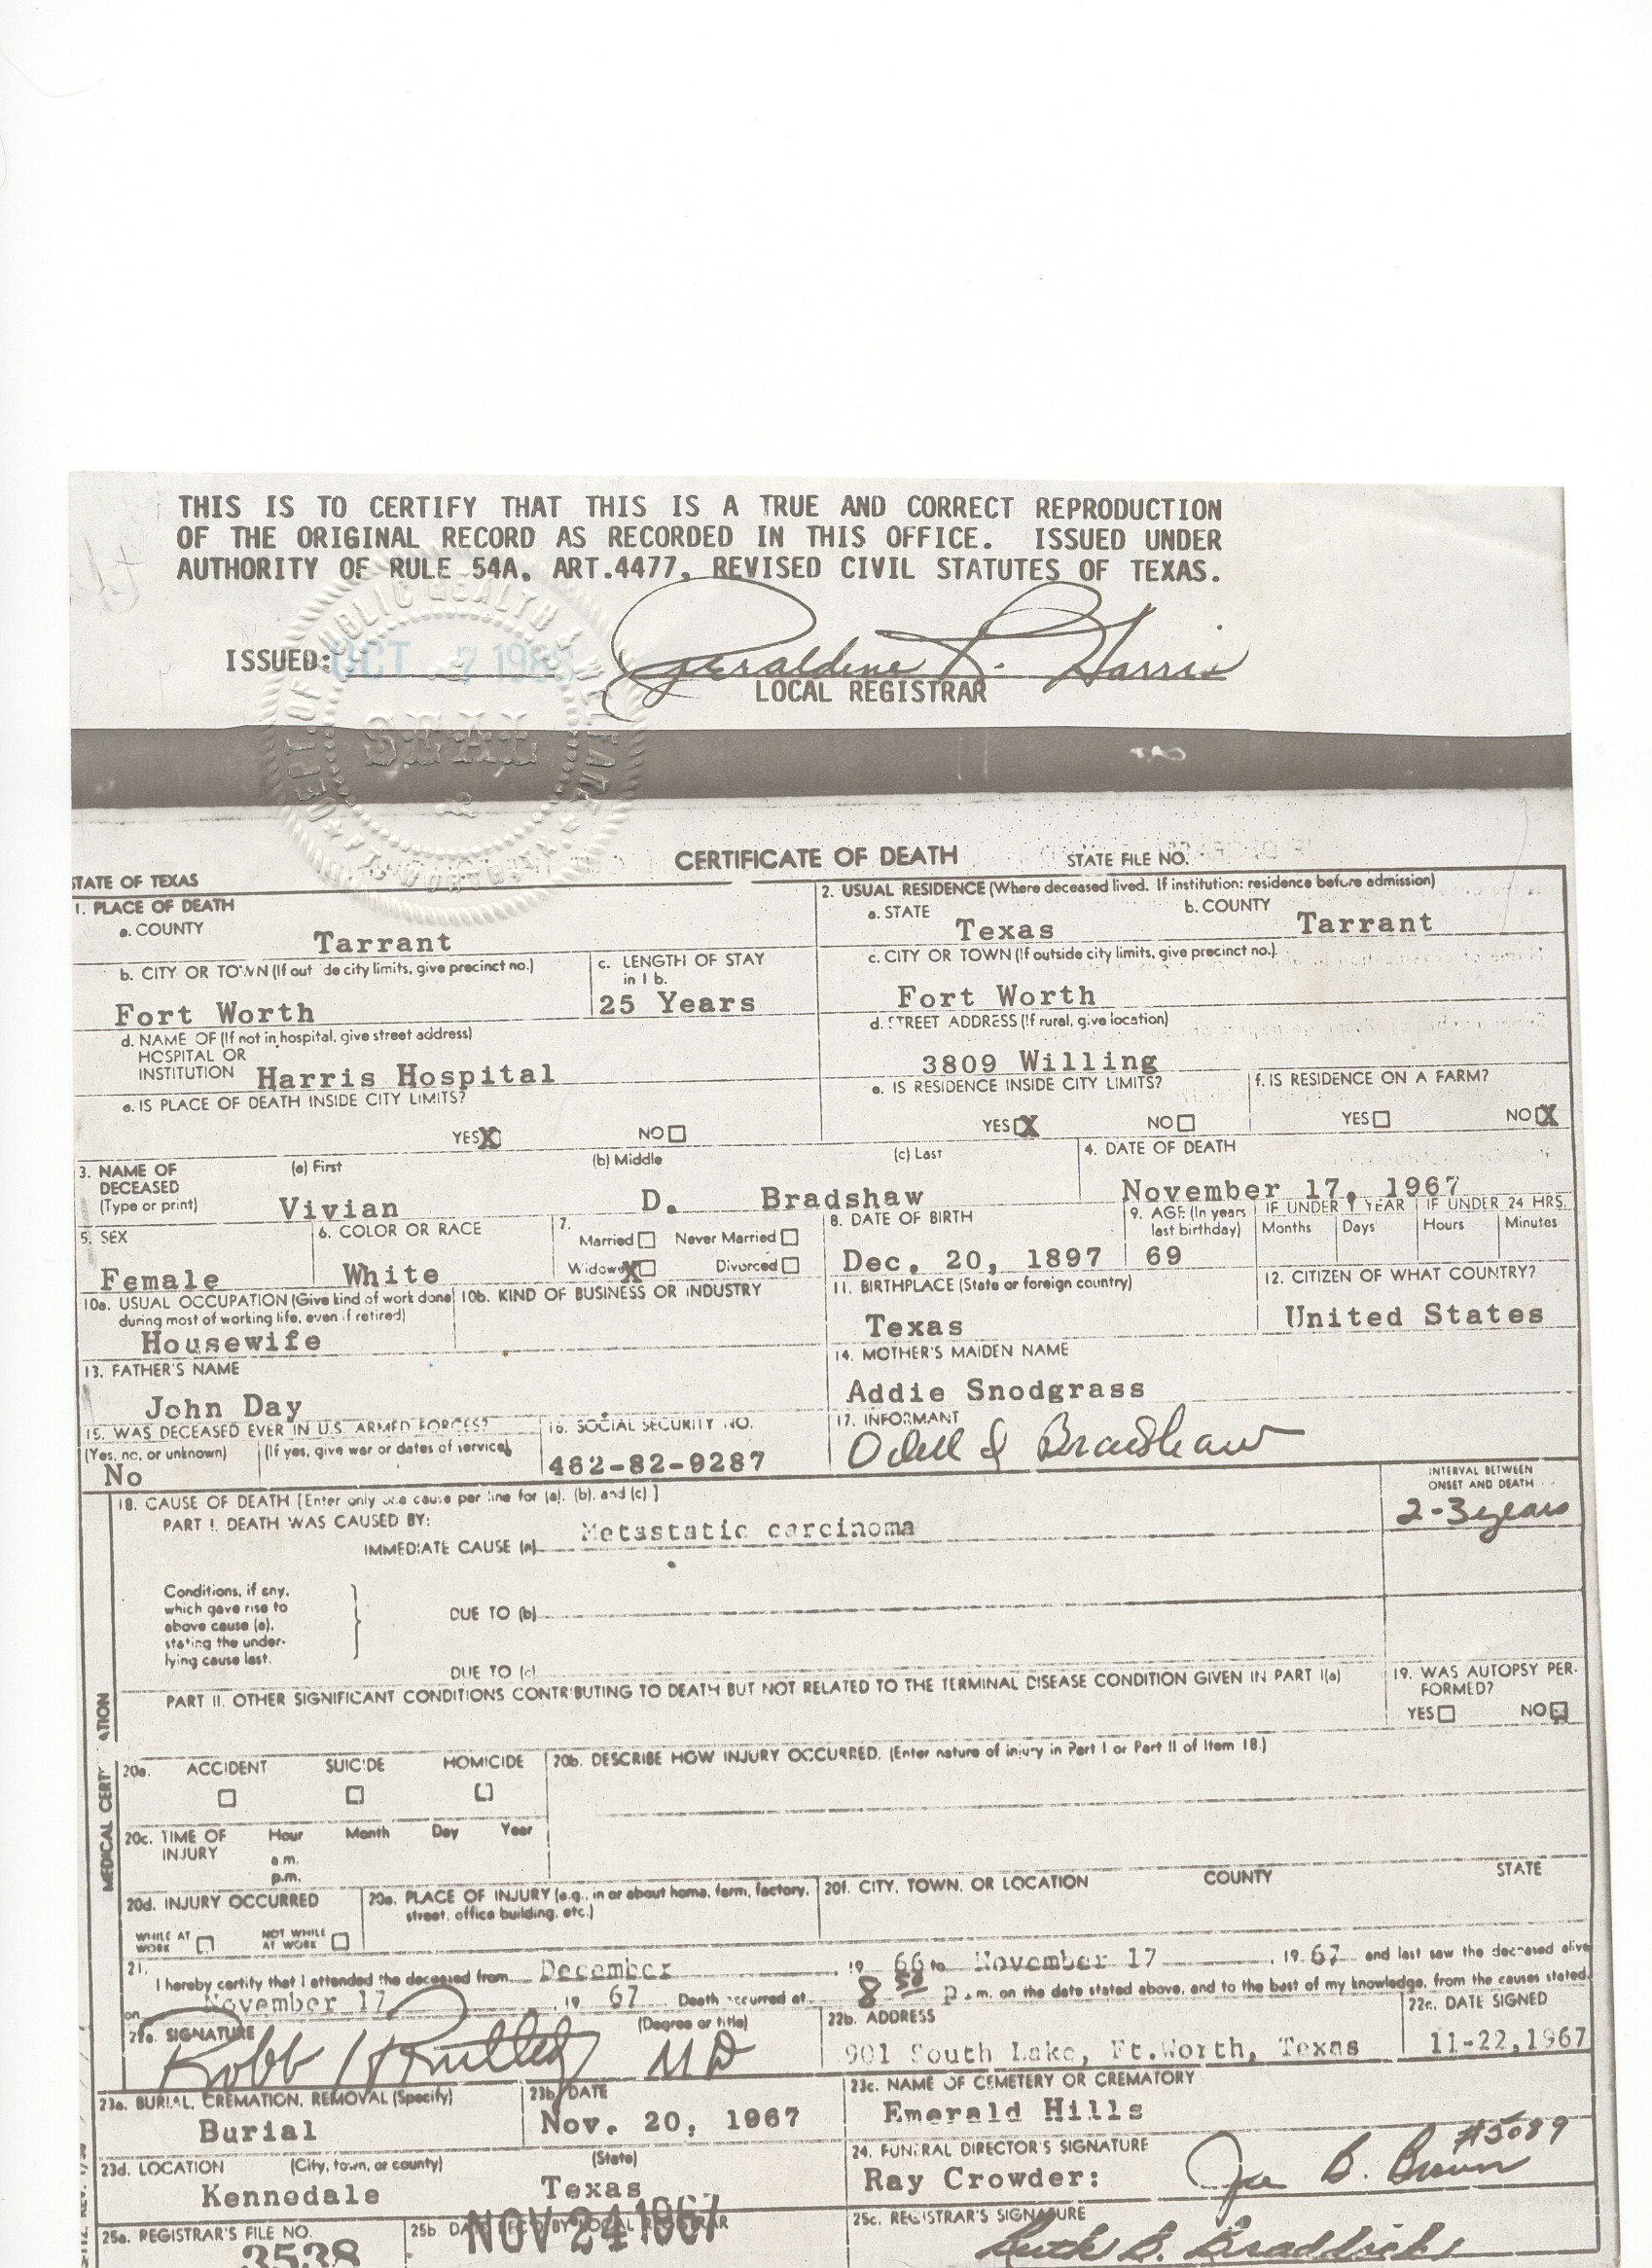 THIS IS TO CERTIFY THAT THIS IS A TRUE AND CORRECT REPRODUCTION
OF THE ORIGINAL RECORD AS RECORDED IN THIS OFFICE. ISSUED UNDER
AUTHORITY OF RULE 54A, ART.4477, REVISED CIVIL STATUTES OF TEXAS.
ISSUED: OCT 7 198 Geraldine Harris
LOCAL REGISTRAR
DEPT. OF PUBLIC HEALTH & WELFARE
SEAL
FT. WORTH
CERTIFICATE OF DEATH STATE FILE NO.
STATE OF TEXAS
1. PLACE OF DEATH
a. COUNTY
Tarrant
2. USUAL RESIDENCE (Where deceased lived. If institution: residence before admission)
a. STATE b. COUNTY
Texas Tarrant
b. CITY OR TOWN (If out de city limits, give precinct no.)
Fort Worth
c. LENGTH OF STAY
in 1 b.
25 Years
c. CITY OR TOWN (If outside city limits, give precinct no.)
Fort Worth
d. NAME OF (If not in hospital, give street address)
HOSPITAL OR
INSTITUTION Harris Hospital
d. STREET ADDRESS (If rural, give location)
3809 Willing
e. IS PLACE OF DEATH INSIDE CITY LIMITS?
YES X NO
e. IS RESIDENCE INSIDE CITY LIMITS?
YES X NO
f. IS RESIDENCE ON A FARM?
YES NO X
3. NAME OF
DECEASED
(Type or print)
(a) First (b) Middle (c) Last
Vivian D. Bradshaw
4. DATE OF DEATH
November 17, 1967
5. SEX
Female
6. COLOR OR RACE
White
7.
Married Never Married
Widowed X Divorced
8. DATE OF BIRTH
Dec. 20, 1897
9. AGE (In years
last birthday)
69
IF UNDER 1 YEAR IF UNDER 24 HRS.
Months Days Hours Minutes
10a. USUAL OCCUPATION (Give kind of work done
during most of working life, even if retired)
Housewife
10b. KIND OF BUSINESS OR INDUSTRY
11. BIRTHPLACE (State or foreign country)
Texas
12. CITIZEN OF WHAT COUNTRY?
United States
13. FATHER'S NAME
John Day
14. MOTHER'S MAIDEN NAME
Addie Snodgrass
15. WAS DECEASED EVER IN U.S. ARMED FORCES?
(Yes, no, or unknown) (If yes, give war or dates of service)
No
16. SOCIAL SECURITY NO.
462-82-9287
17. INFORMANT
Odell J Bradshaw
MEDICAL CERT ATION
18. CAUSE OF DEATH [Enter only one cause per line for (a), (b), and (c).]
PART I. DEATH WAS CAUSED BY:
IMMEDIATE CAUSE (a) Metastatic carcinoma
INTERVAL BETWEEN
ONSET AND DEATH
2-3 years
Conditions, if any,
which gave rise to
above cause (a),
stating the under-
lying cause last.
DUE TO (b)
DUE TO (c)
PART II. OTHER SIGNIFICANT CONDITIONS CONTRIBUTING TO DEATH BUT NOT RELATED TO THE TERMINAL DISEASE CONDITION GIVEN IN PART I(a)
19. WAS AUTOPSY PER-
FORMED?
YES NO
20a. ACCIDENT SUICIDE HOMICIDE
20b. DESCRIBE HOW INJURY OCCURRED. (Enter nature of injury in Part I or Part II of Item 18.)
20c. TIME OF
INJURY
Hour Month Day Year
a.m.
p.m.
20d. INJURY OCCURRED
WHILE AT
WORK
NOT WHILE
AT WORK
20e. PLACE OF INJURY (e.g., in or about home, farm, factory,
street, office building, etc.)
20f. CITY, TOWN, OR LOCATION COUNTY STATE
21.
I hereby certify that I attended the deceased from December , 19 66 to November 17 , 19 67 and last saw the deceased alive
on November 17 , 19 67 Death occurred at 8 50 p.m. on the date stated above, and to the best of my knowledge, from the causes stated.
22a. SIGNATURE (Degree or title)
Robb H Rutledge MD
22b. ADDRESS
901 South Lake, Ft.Worth, Texas
22c. DATE SIGNED
11-22,1967
23a. BURIAL, CREMATION, REMOVAL (Specify)
Burial
23b. DATE
Nov. 20, 1967
23c. NAME OF CEMETERY OR CREMATORY
Emerald Hills
23d. LOCATION (City, town, or county) (State)
Kennedale Texas
24. FUNERAL DIRECTOR'S SIGNATURE #5089
Ray Crowder: Joe B. Brown
25a. REGISTRAR'S FILE NO.
3538
25b. DATE REC'D BY LOCAL REGISTRAR
NOV 24 1967
25c. REGISTRAR'S SIGNATURE
Ruth B. Braddick